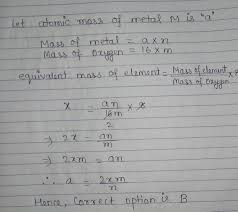 Let atomic mass of metal M is "a"
Mass of metal = a x n
Mass of Oxygen = 16 x m
equivalent mass of element = Mass of element / Mass of Oxygen x 8
x = an / 16m x 8
2
⇒ 2x = an / m
⇒ 2xm = an
∴ a = 2xm / n
Hence, Correct option is B